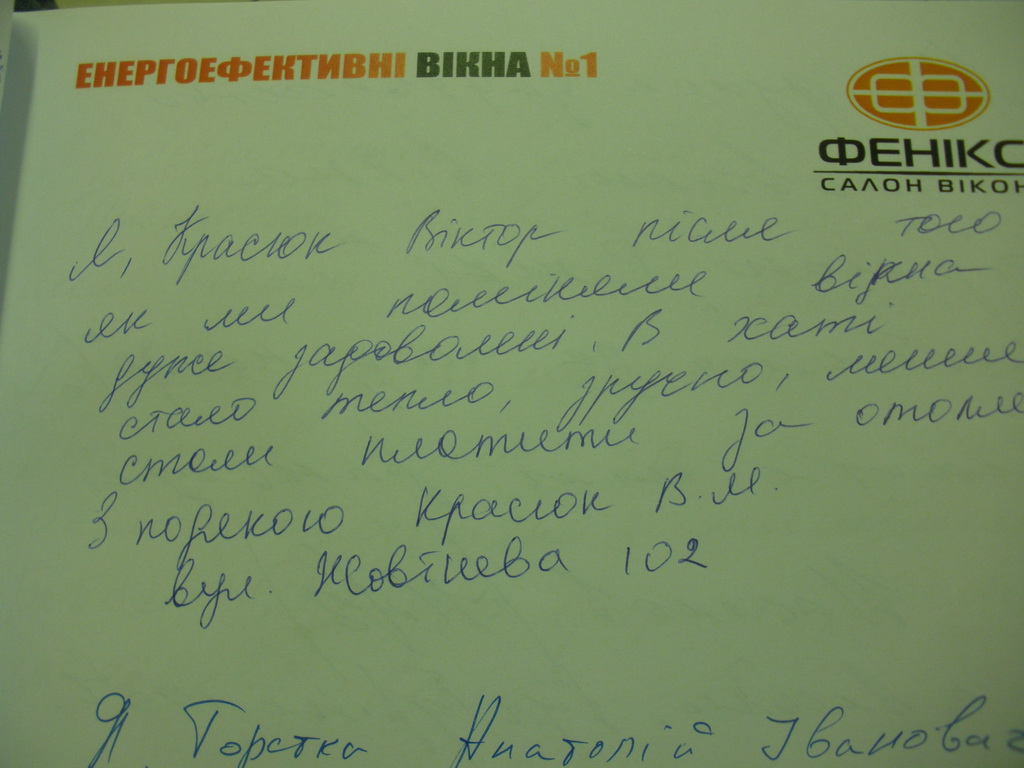 ЕНЕРГОЕФЕКТИВНІ ВІКНА №1
ФЕНІКС
САЛОН ВІКОН
Я, Красюк Віктор після того
як ми поміняли вікна
дуже задоволені. В хаті
стало тепло, зручно, менше
стали платити за отопле
З подякою Красюк В.М.
вул. Жовтнева 102
Я Горстка Анатолій Іванович